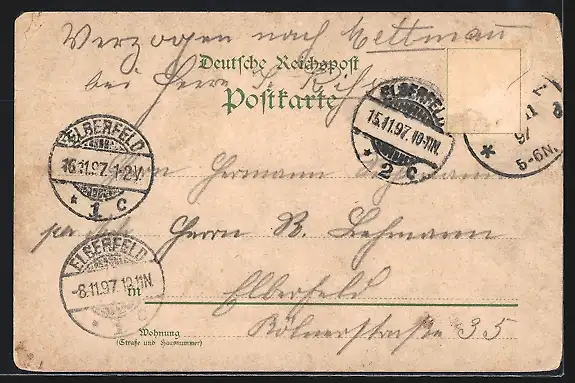 Verzogen nach Mettmann
Deutsche Reichspost
bei Herrn
Postkarte
ELBERFELD
15.11.97. 10-11N.
* 2 c
11
97
5-6N.
*
ELBERFELD
16.11.97. 1-2V.
* 1 c
Herrn Hermann
Herrn R. Lehmann
ELBERFELD
-8.11.97. 10-11N.
* 1 c
in Elberfeld
Wohnung Kölnerstraße 35
(Straße und Hausnummer)